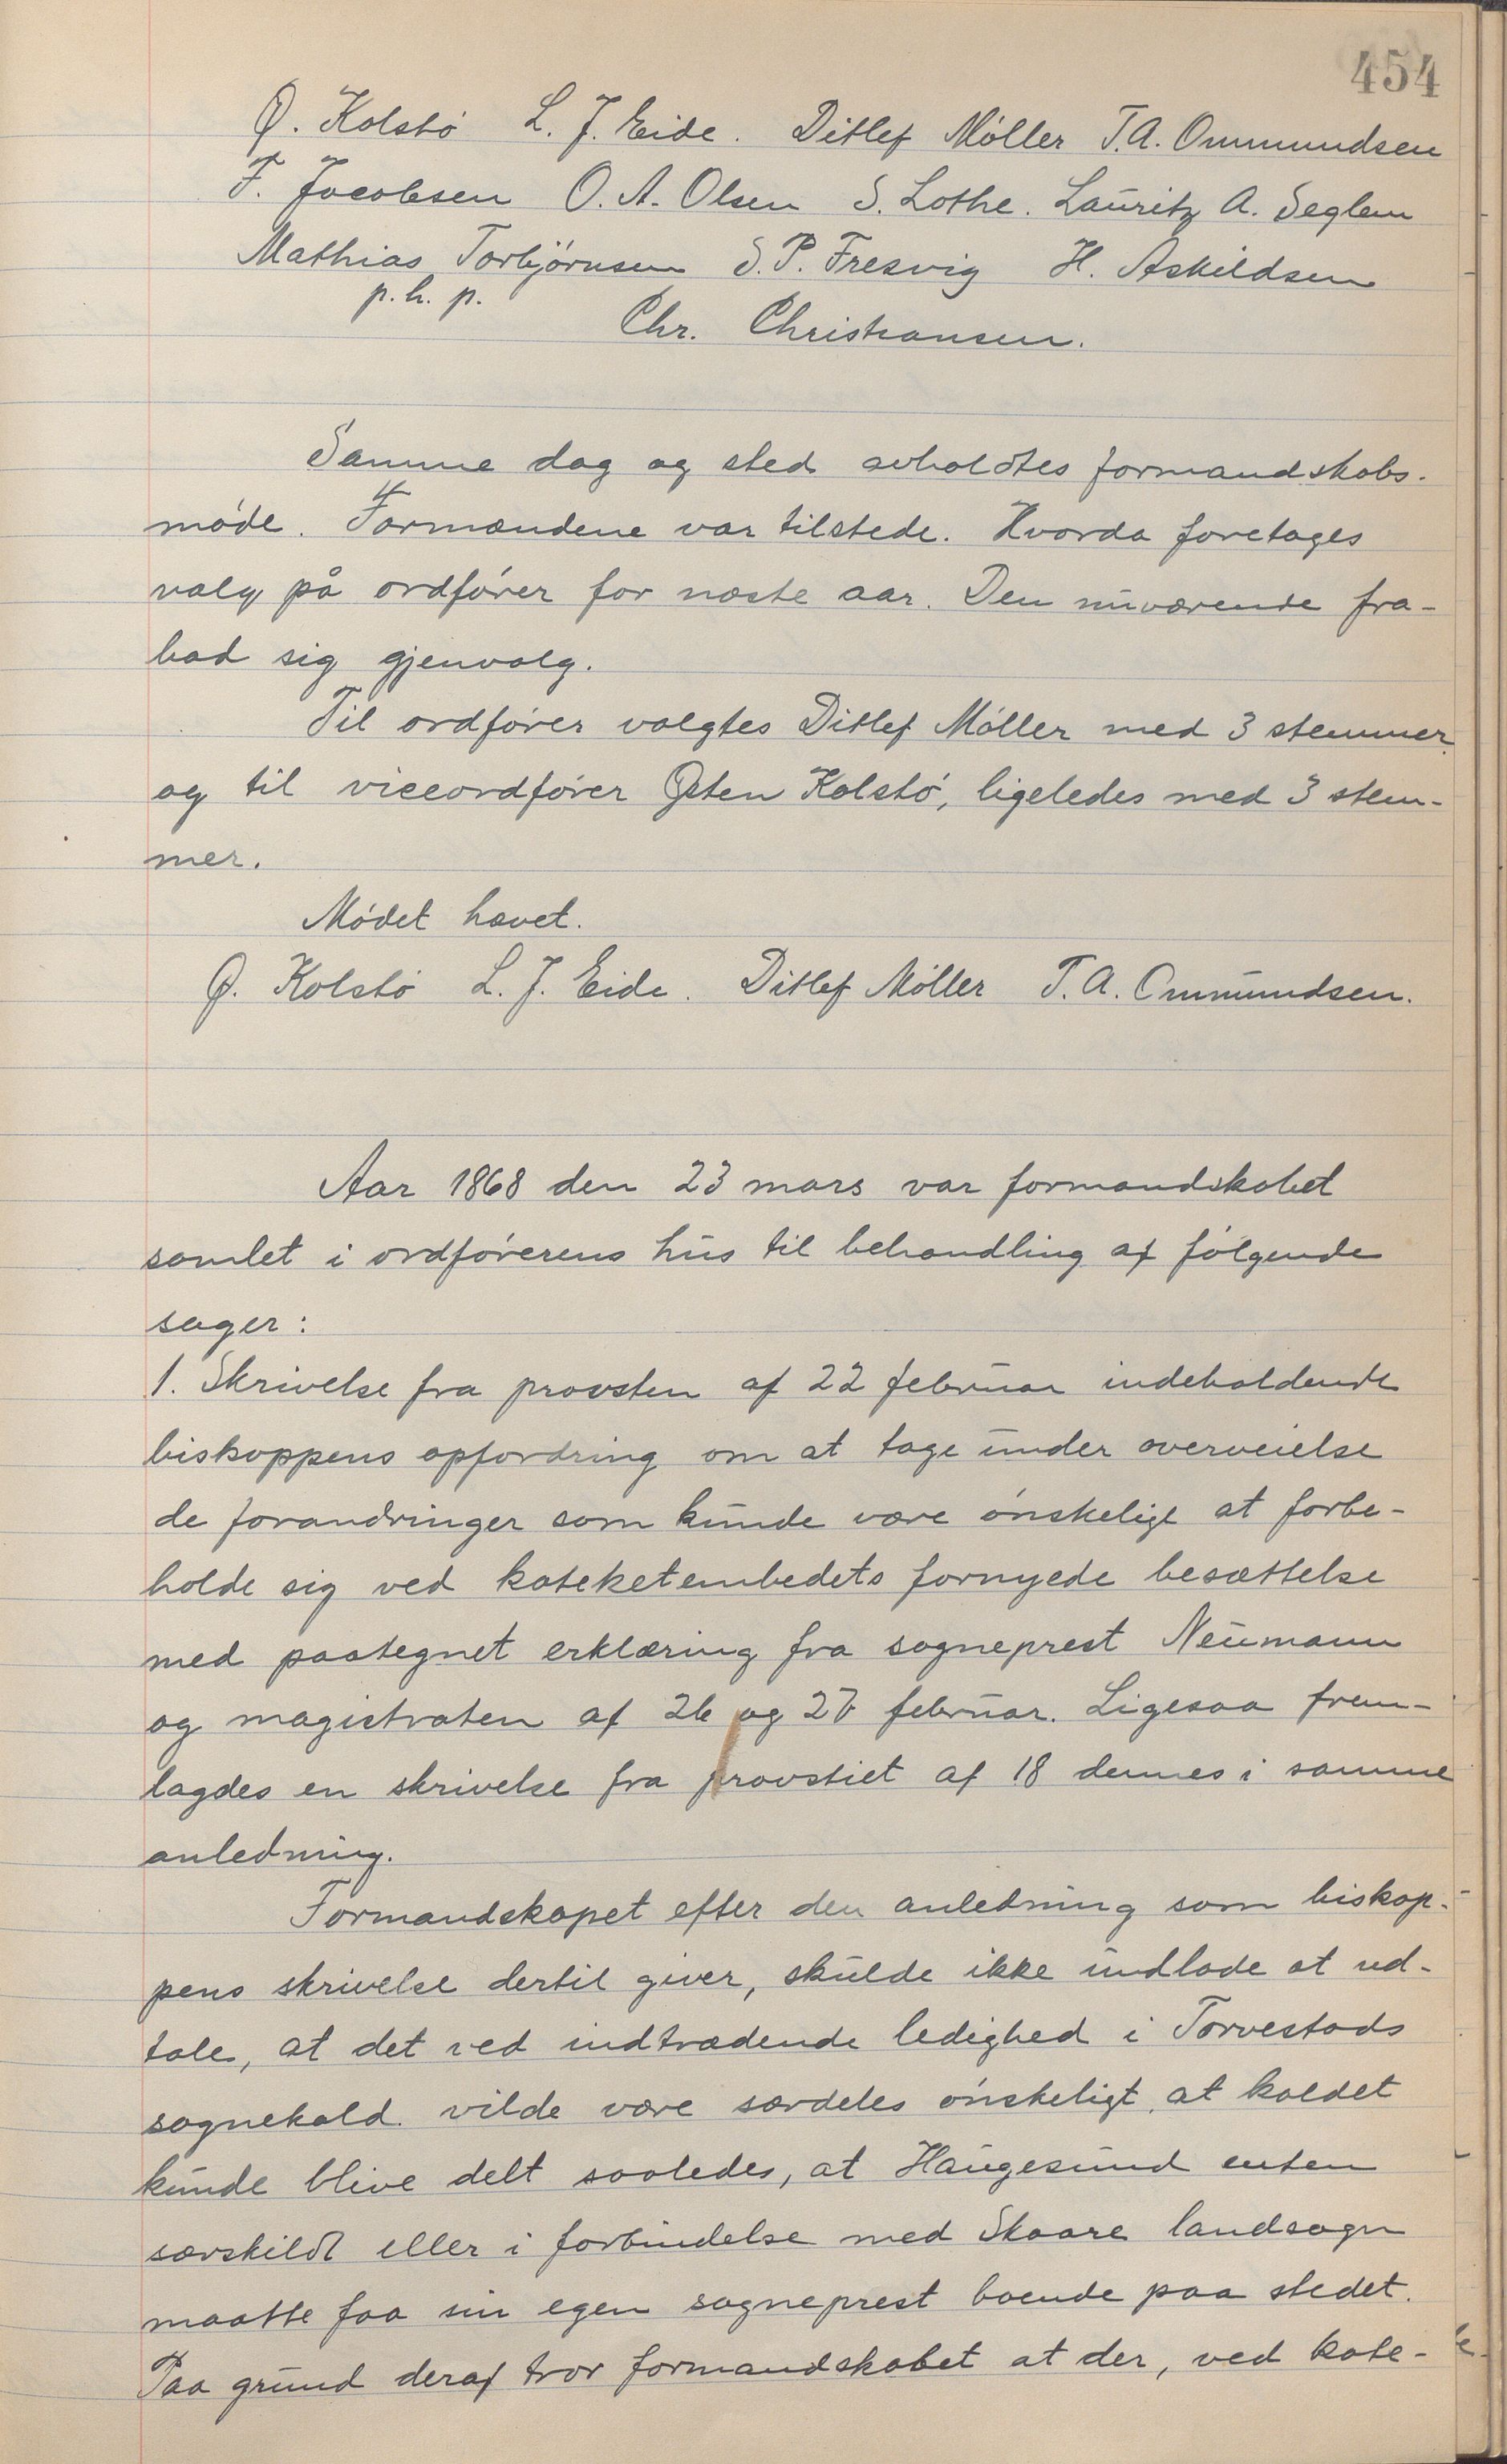 454
Ø. Kolstö L. J. Eide. Ditlef Möller T. A. Ommundsen
F. Jacobsen O. A. Olsen S. Lothe. Lauritz A. Seglem
Mathias Torbjörnsen S. P. Fresvig H. Askildsen
p. h. p.
Chr. Christiansen.
Samme dag og sted avholdtes formandskabs-
möde. Formændene var tilstede. Hvorda foretages
valg på ordförer for næste aar. Den nuværende fra-
bad sig gjenvalg.
Til ordförer valgtes Ditlef Möller med 3 stemmer
og til viceordförer Østen Kolstö, ligeledes med 3 stem-
mer.
Mödet hævet.
Ø. Kolstö L. J. Eide. Ditlef Möller T. A. Ommundsen.
Aar 1868 den 23 mars var formandskabet
samlet i ordförerens hus til behandling af fölgende
sager:
1. Skrivelse fra provsten af 22 februar indeholdende
biskoppens opfordring om at tage under overveielse
de forandringer som kunde være önskeligt at forbe-
holde sig ved kateketembedets fornyede besættelse
med paategnet erklæring fra sogneprest Neumann
og magistraten af 26 og 27 februar. Ligesaa frem-
lagdes en skrivelse fra provstiet af 18 dennes i samme
anledning.
Formandskapet efter den anledning som biskop-
pens skrivelse dertil giver, skulde ikke undlade at ud-
tale, at det ved indtrædende ledighed i Torvestads
sognekald vilde være særdeles önskeligt, at kaldet
kunde blive delt saaledes, at Haugesund enten
særskildt eller i forbindelse med Skaare landsogn
maatte faa sin egen sogneprest boende paa stedet.
Paa grund deraf tror formandskabet at der, ved kate-